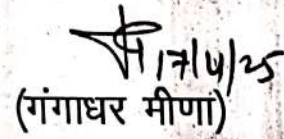 17/4/25
(गंगाधर मीणा)